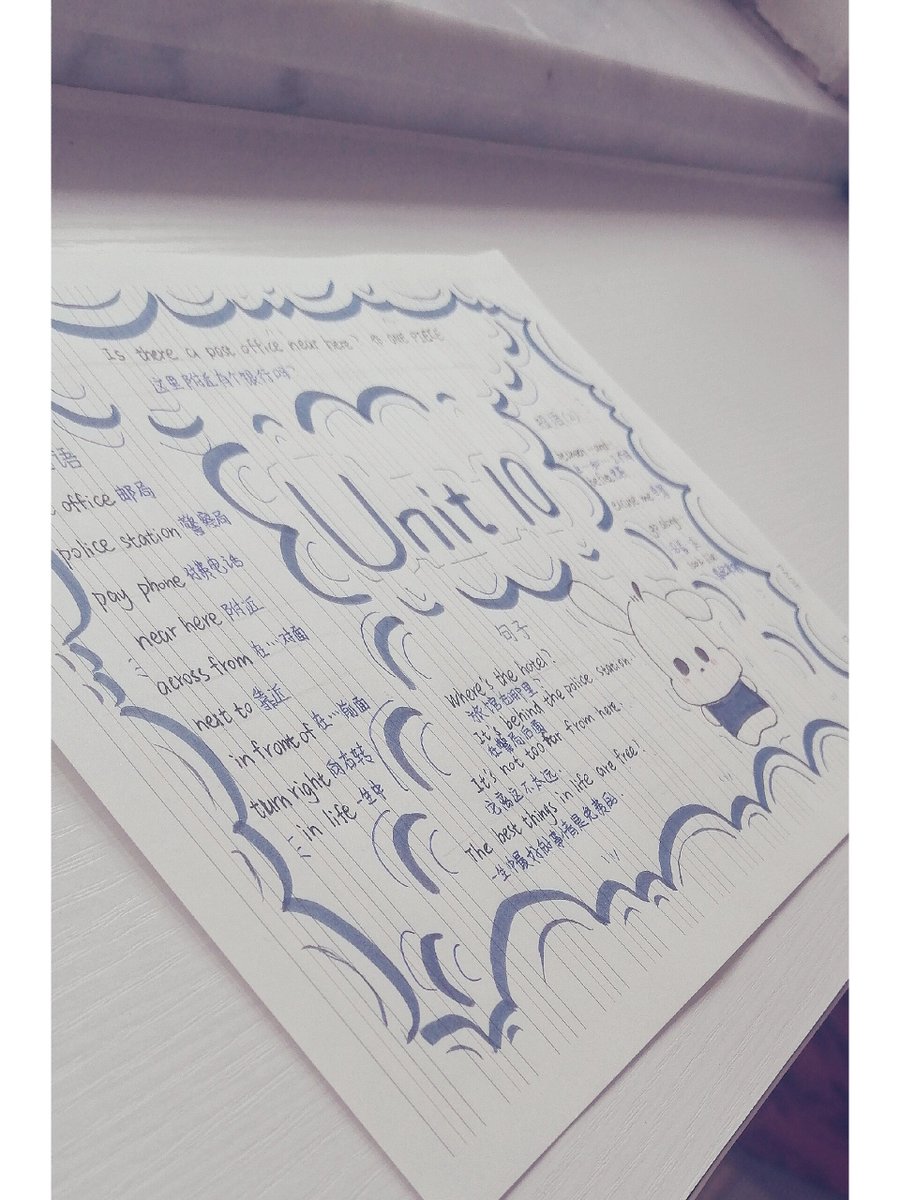 Is there a post office near here?
这里附近有个银行吗?
Unit 10
语
office 邮局
police station 警察局
pay phone 付费电话
near here 附近
across from 在…对面
next to 靠近
in front of 在…前面
turn right 向右转
in life 一生中
句子
Where's the hotel?
旅馆在哪里?
It's behind the police station.
在警局后面
It's not too far from here.
它离这不太远.
The best things in life are free!
一生中最好的事情是免费的.
excuse me
go along